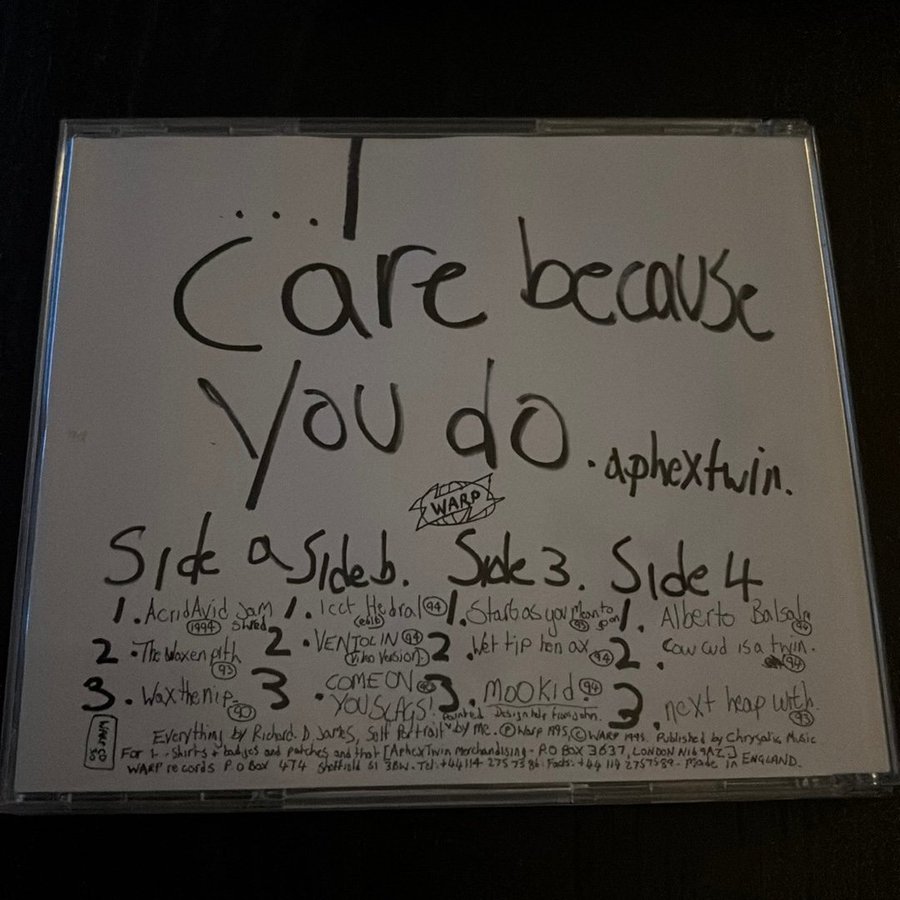 ...I
Care because
you do
.aphextwin.
WARP
Side a
1. Acrid Avid Jam Shred
1994
2. The waxen pith
93
3. Wax the nip.
90
Side b.
1. Icct Hedral 94
(edit)
2. VENTOLIN 94
(Video Version)
3. COME ON
YOU SLAGS!
Side 3.
1. Start as you Mean to go on
93
2. Wet tip hen ax. 94
3. Mookid. 94
Side 4
1. Alberto Balsalm
2. Cow cud is a twin.
94
3. next heap with.
93
Everything by Richard D. James, Self Portrait painted by me. Design help from John. Ⓟ Warp 1995, © WARP 1995. Published by Chrysalis Music
For t-shirts + badges and patches and that [Aphex Twin merchandising - P.O BOX 3637, LONDON N16 9AZ.]
WARP records P.O Box 474 Sheffield S1 3BW. Tel: +44 114 2757586. Facts: +44 114 2757589 - Made in ENGLAND.